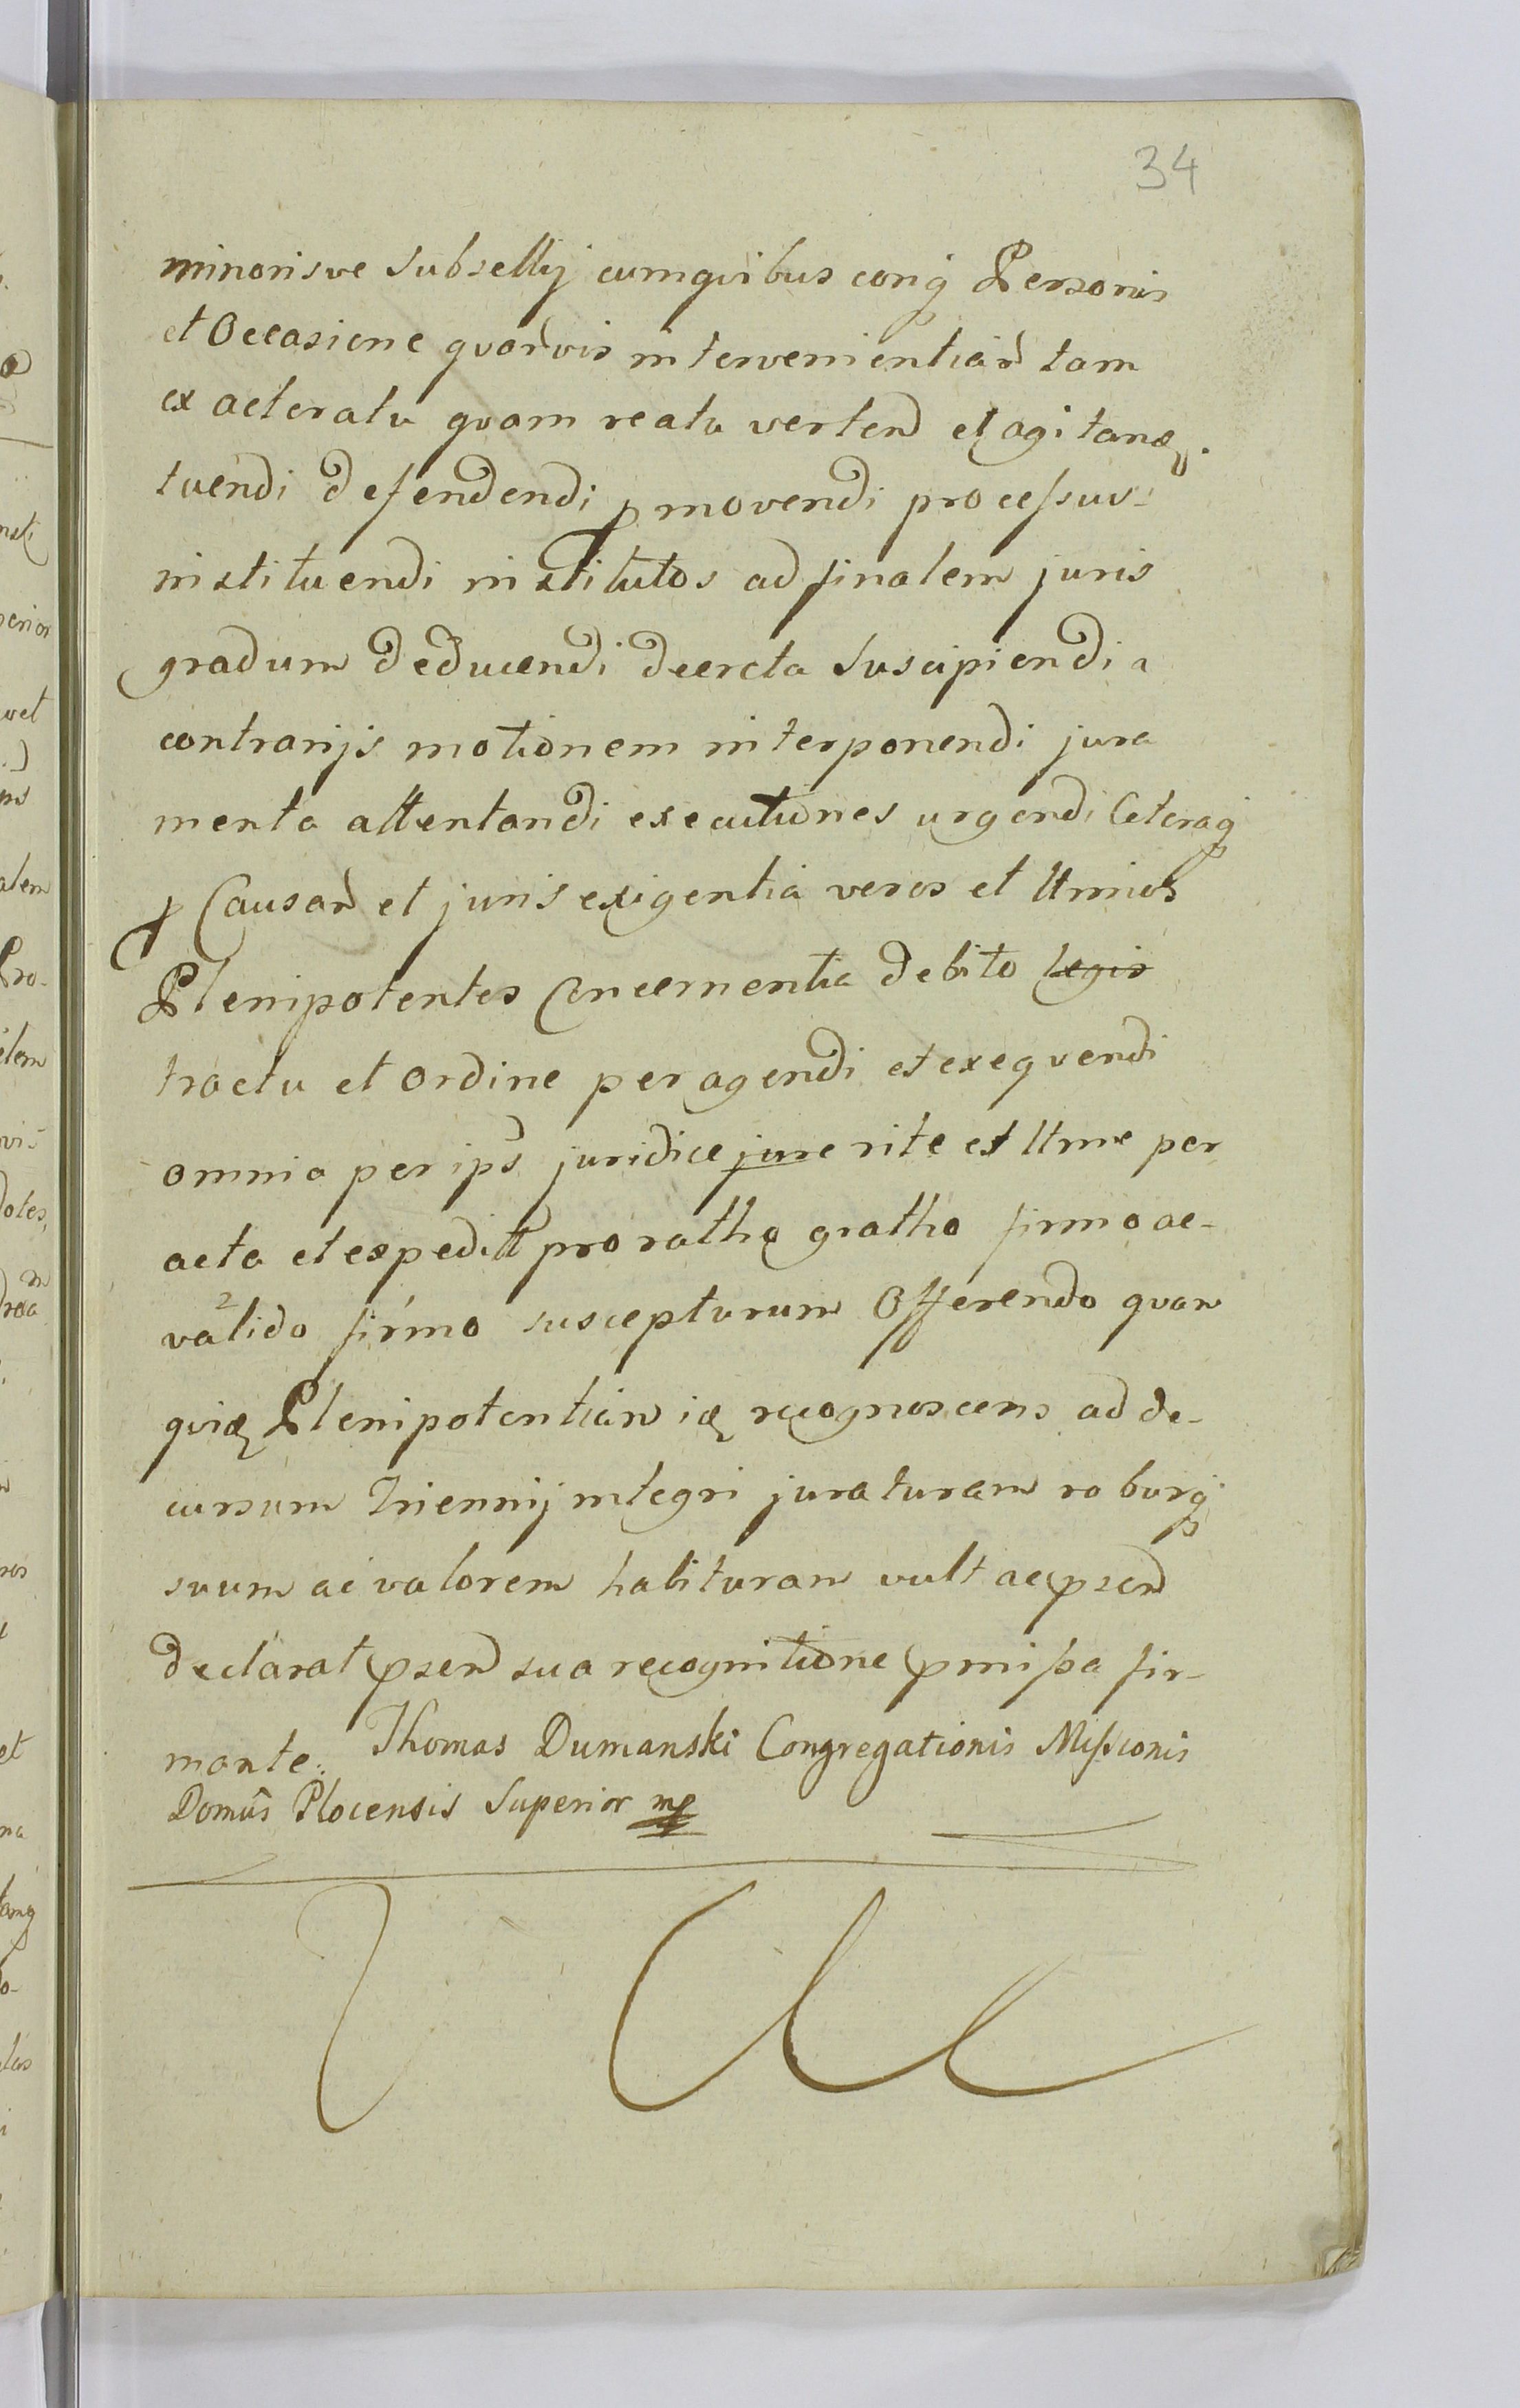 34
minorisve Subsellij cumqvibus conq Personis
et Occasione qvarvis intervenientiar tam
ex actoratu qvam reatu verten et agitan
tuendi defendendi pmovendi processus
instituendi institutos ad finalem juris
gradum deducendi decreta suscipiendi a
contrarijs motionem interponendi jura
menta attentandi executiones urgendi Ceteraq
p Causar et juris exigentia veros et lttmos
Plenipotentes Concernentia debito legis
tractu et ordine peragendi et exeqvendi
omnia per ips juridice jure rite et lttme per
acta et expeditt pro ratho gratho firmo ac-
valido firmo suscepturum Offerendo qvam
qvidē Plenipotentiam idē recognoscens ad de-
cursum Triennij integri juraturam roburq
suum ac valorem habituram vult ac psen
declarat psen sua recognitione pmissa fir-
mante. Thomas Dumanski Congregationis Missionis
Domûs Plocensis Superior mp